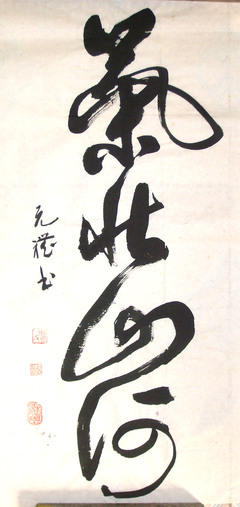 氣壯山河
元禮书